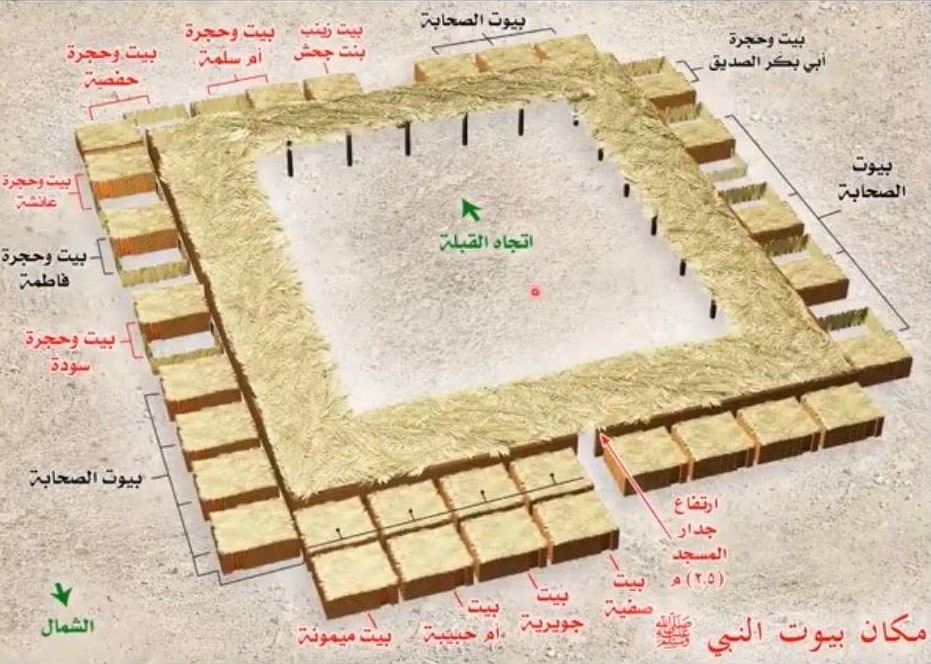 بيوت الصحابة
بيت زينب
بنت جحش
بيت وحجرة
أم سلمة
بيت وحجرة
حفصة
بيت وحجرة
أبي بكر الصديق
بيوت
الصحابة
بيت وحجرة
عائشة
بيت وحجرة
فاطمة
بيت وحجرة
سودة
اتجاه القبلة
بيوت الصحابة
ارتفاع
جدار
المسجد
(٢,٥) م
بيت
صفية
بيت
جويرية
بيت
أم حبيبة
بيت ميمونة
الشمال
مكان بيوت النبي ﷺ